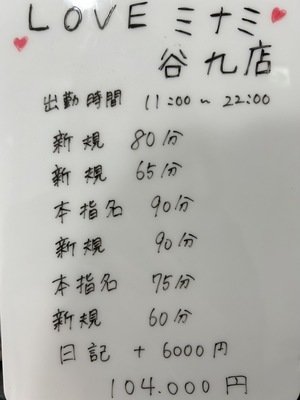 LOVE ミナミ
谷九店
出勤時間 11:00～22:00
新規 80分
新規 65分
本指名 90分
新規 90分
本指名 75分
新規 60分
日記 + 6000円
104.000円